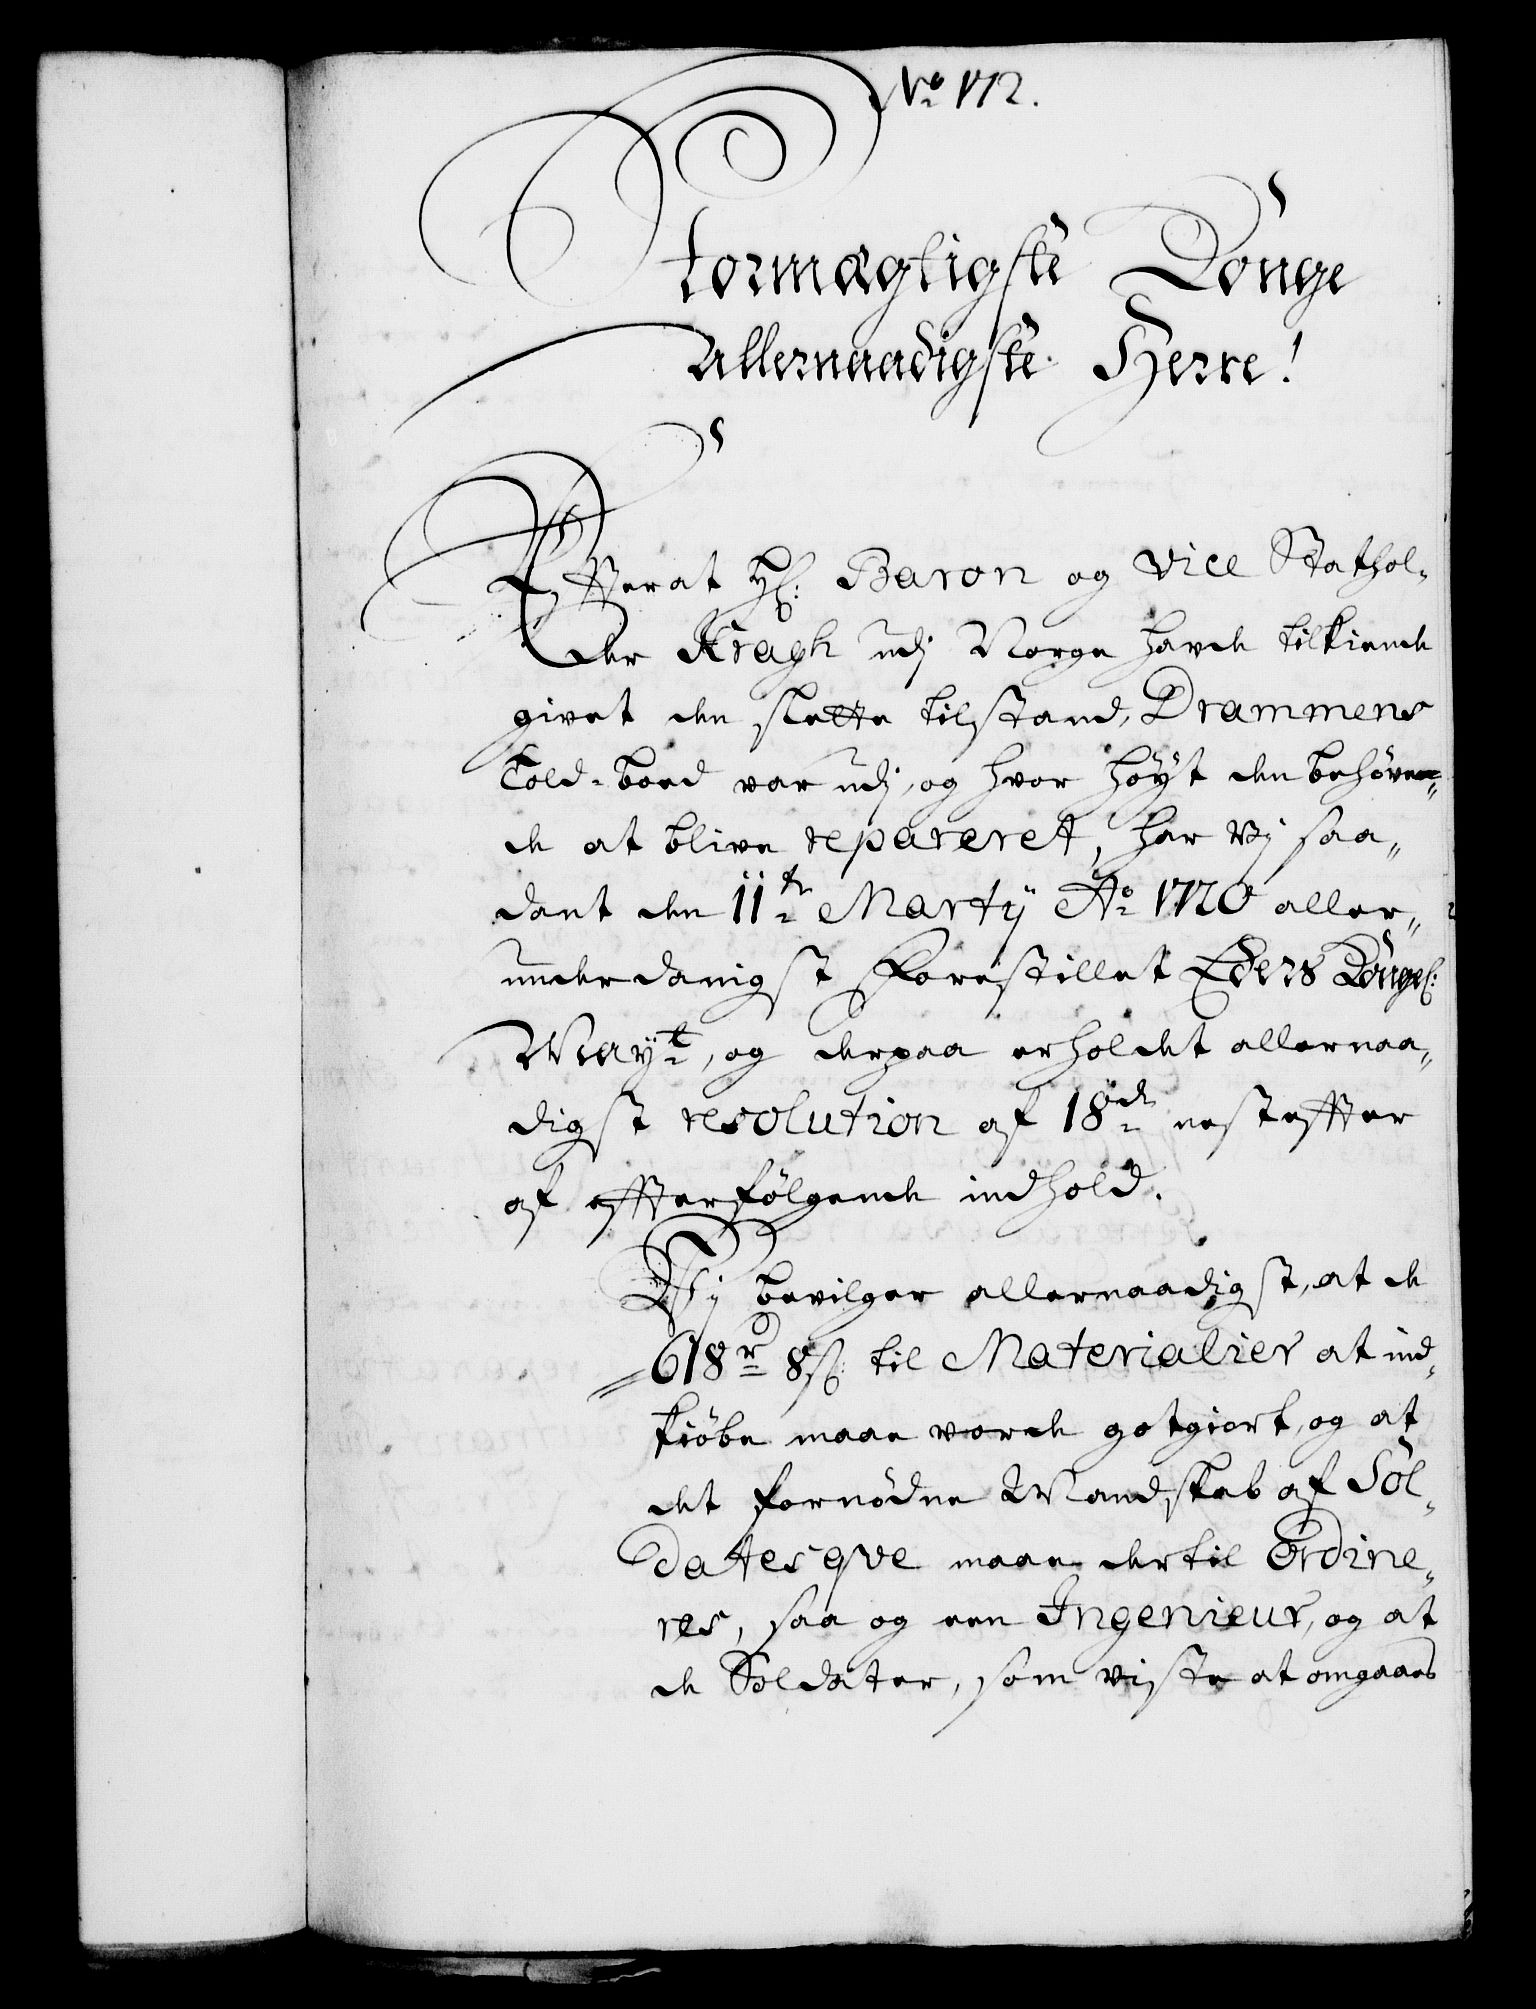 No 172.
Stormægtigste Konge
Allernaadigste Herre!
Efterat Hl: Baron og Vice Stathol-
der Kragh udj Norge hafde tilkiende
givet den slette tilstand, Drammens
Told-boed var udj, og hvor høyt den behøve-
de at blive repareret, har Vj saa-
dant den 11te Martij Ao 1720 aller-
underdanigst forestillet Eders Kongel:
Mayt, og derpaa erholdet allernaa-
digst resolution af 18de nestefter
af efterfölgende indhold.
Vj bevilger allernaadigst, at de
618 r 8 s: til Materialier at ind-
kiöbe maae vorde gotgiort, og at
det fornödne Mandskab af Sol-
datesqve maae dertil Ordine-
res, saa og een Ingenieur, og at
de Soldater, som viste at omgaaes